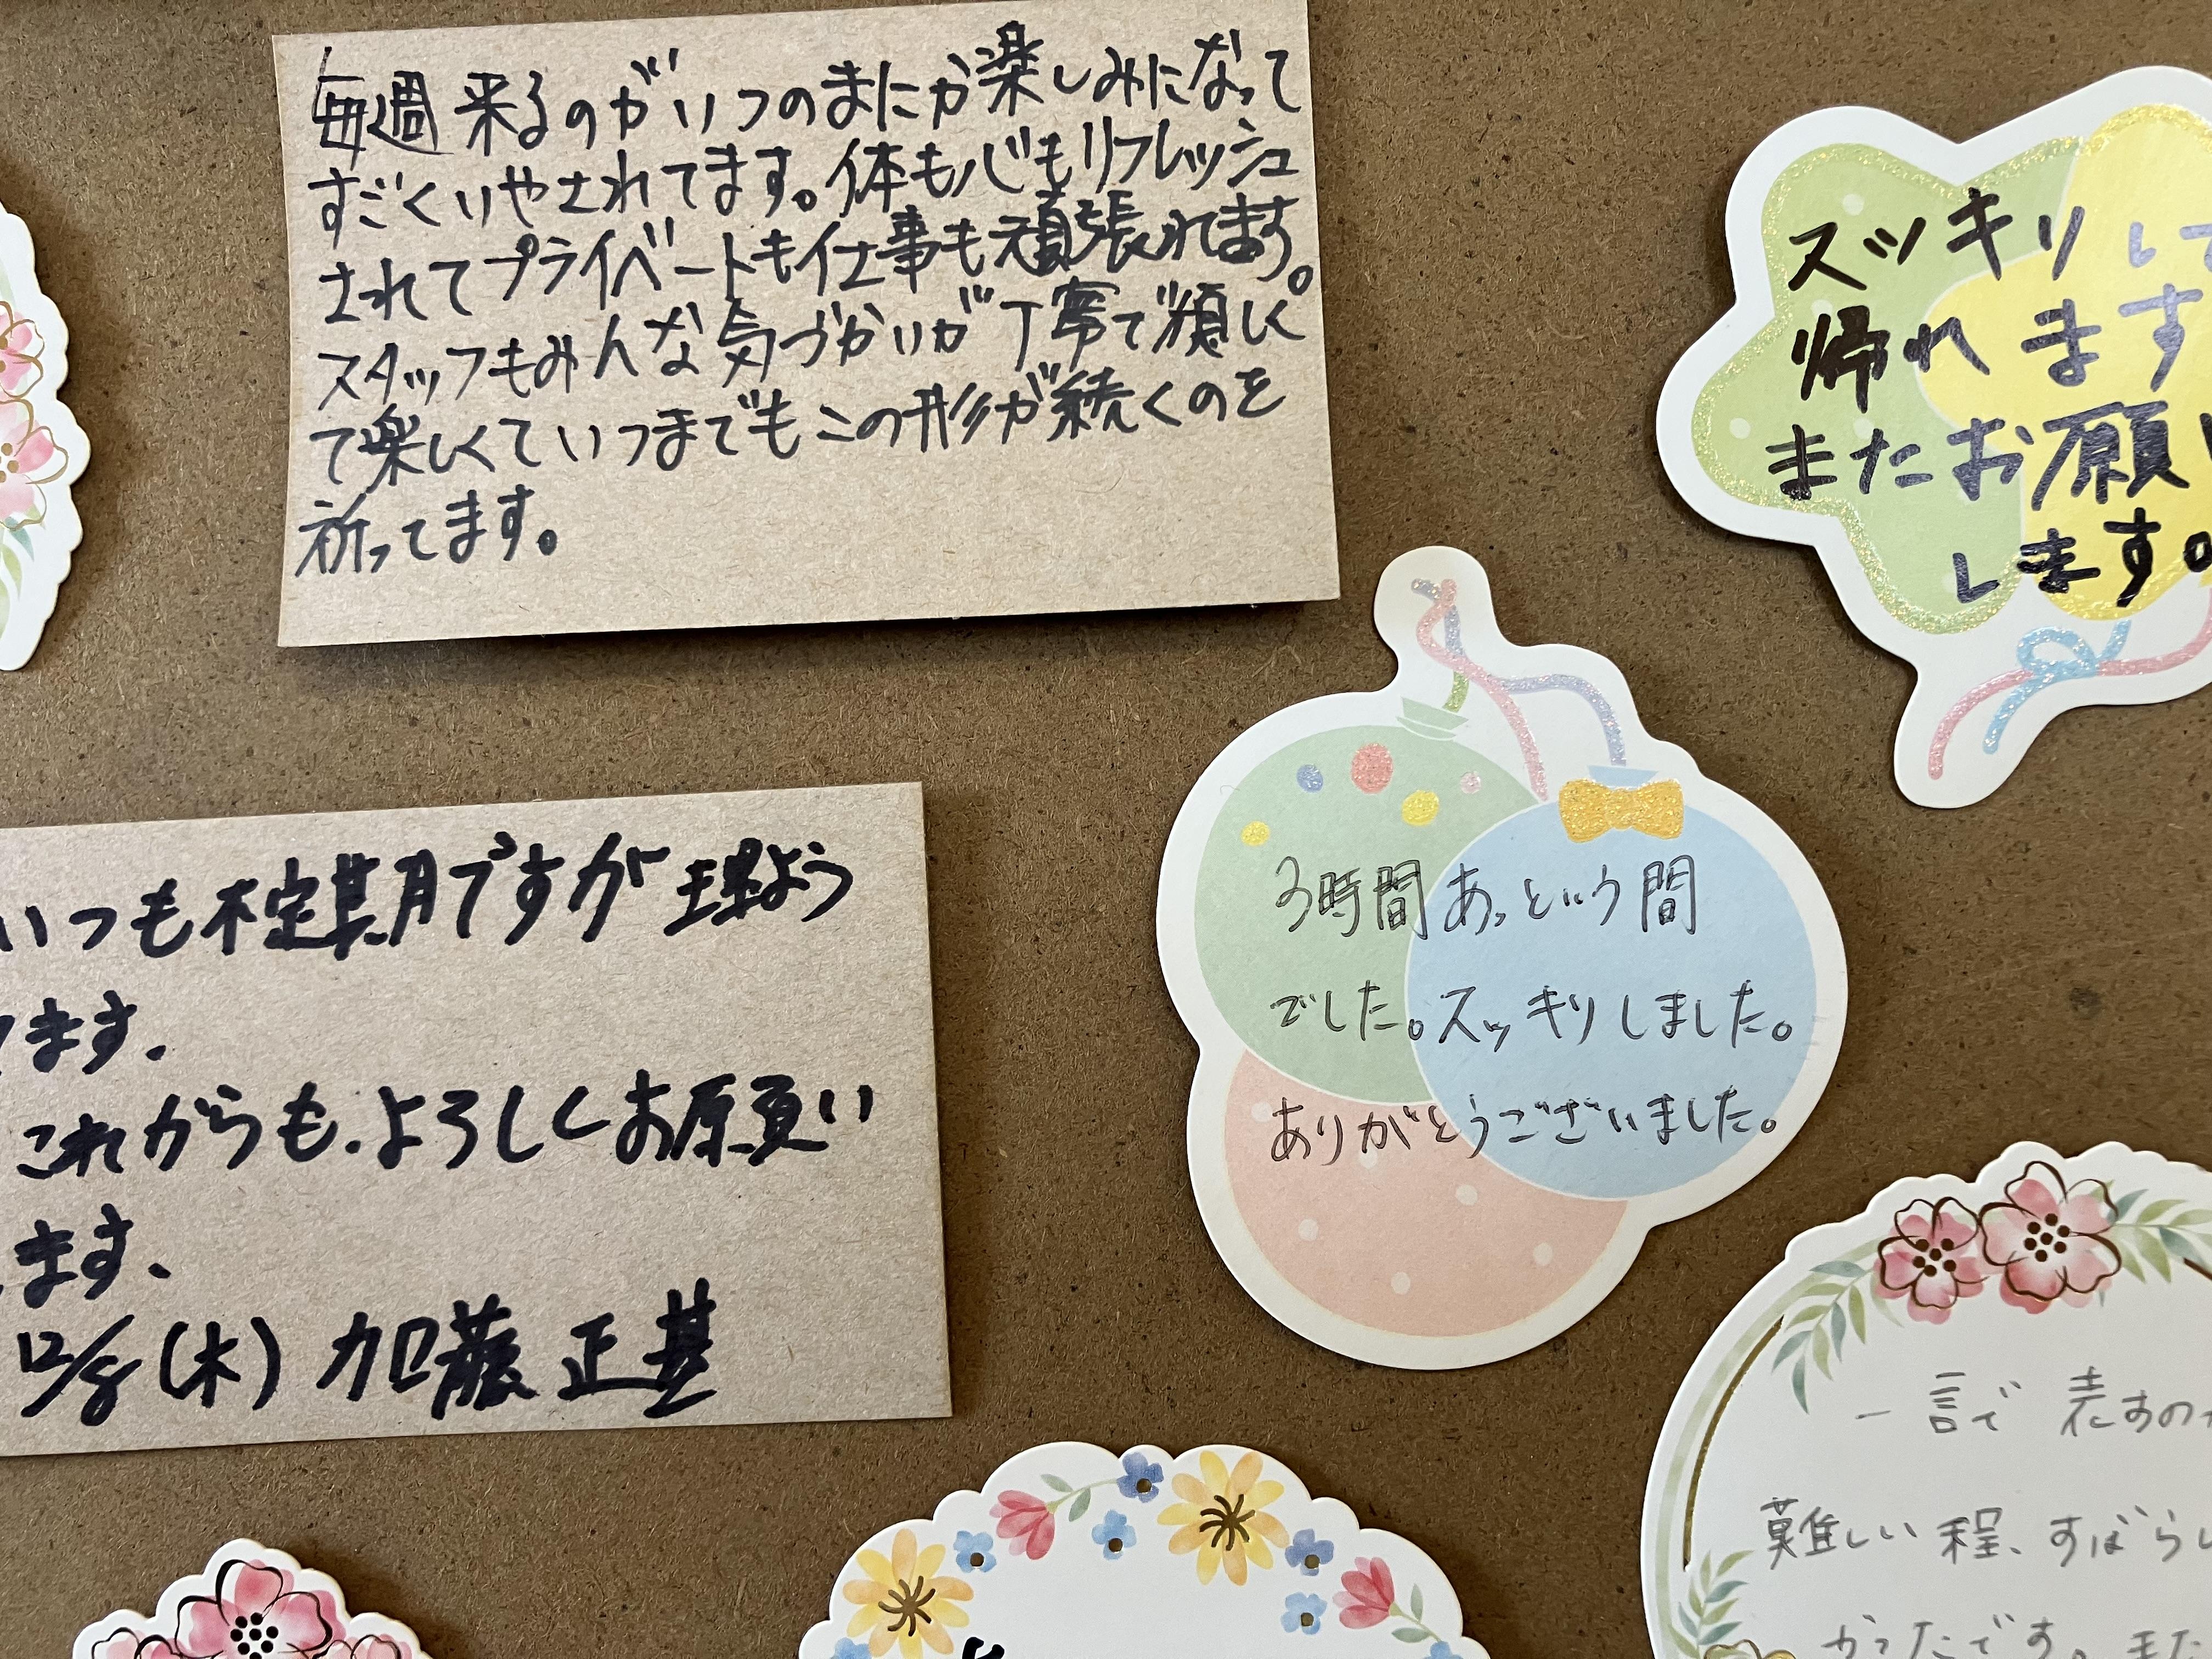 毎週来るのがいつのまにか楽しみになって
すごくいやされてます。体も心もリフレッシュ
されてプライベートも仕事も頑張れてます。
スタッフもみんな気づかいが丁寧で優しく
て楽しくていつまでもこの形が続くのを
祈ってます。
スッキリして
帰れます
またお願い
します。
いつも不定期ですが
ます.
これからも.よろしくお願い
ます.
12/8(木) 加藤 正基
3時間あっという間
でした。スッキリしました。
ありがとうございました。
一言で 表すのが
難しい程、すばらし
かったです。また